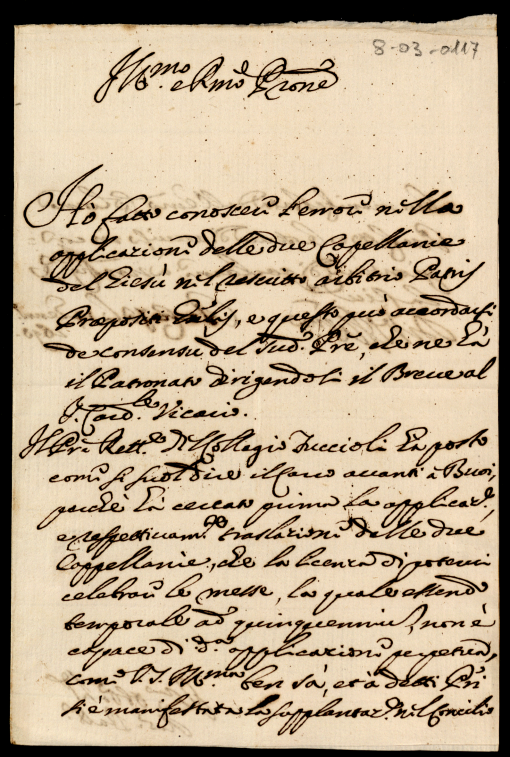 8-03-0117
Ill.mo e Rmo Prone
Hò fatto conoscere l'errore nella
applicazione delle due Capellanie
del Giesù nel rescritto arbitrio Patris
Præpositi Gñlis, e questo può accordarsi
de consensu del Sud.º Pre, che ne hà
il Patronato dirigendoli il Breve al
S. Card.le Vicario.
Il Pre Rett.re del Collegio Fuccioli hà posto
come si suol dire il Carro avanti a Buoi,
perchè hà cercato prima la applicaz.e,
e respettivam.te traslazione delle due
Cappellanie, che la licenza di potervi
celebrare le messe, la quale essendo
temporale ad quinquennium, non è
capace di d.a applicazione perpetua,
come V.S. Ill.ma ben sà, et à detti Pri
si è manifestata la supplantaz.e nel Concilio